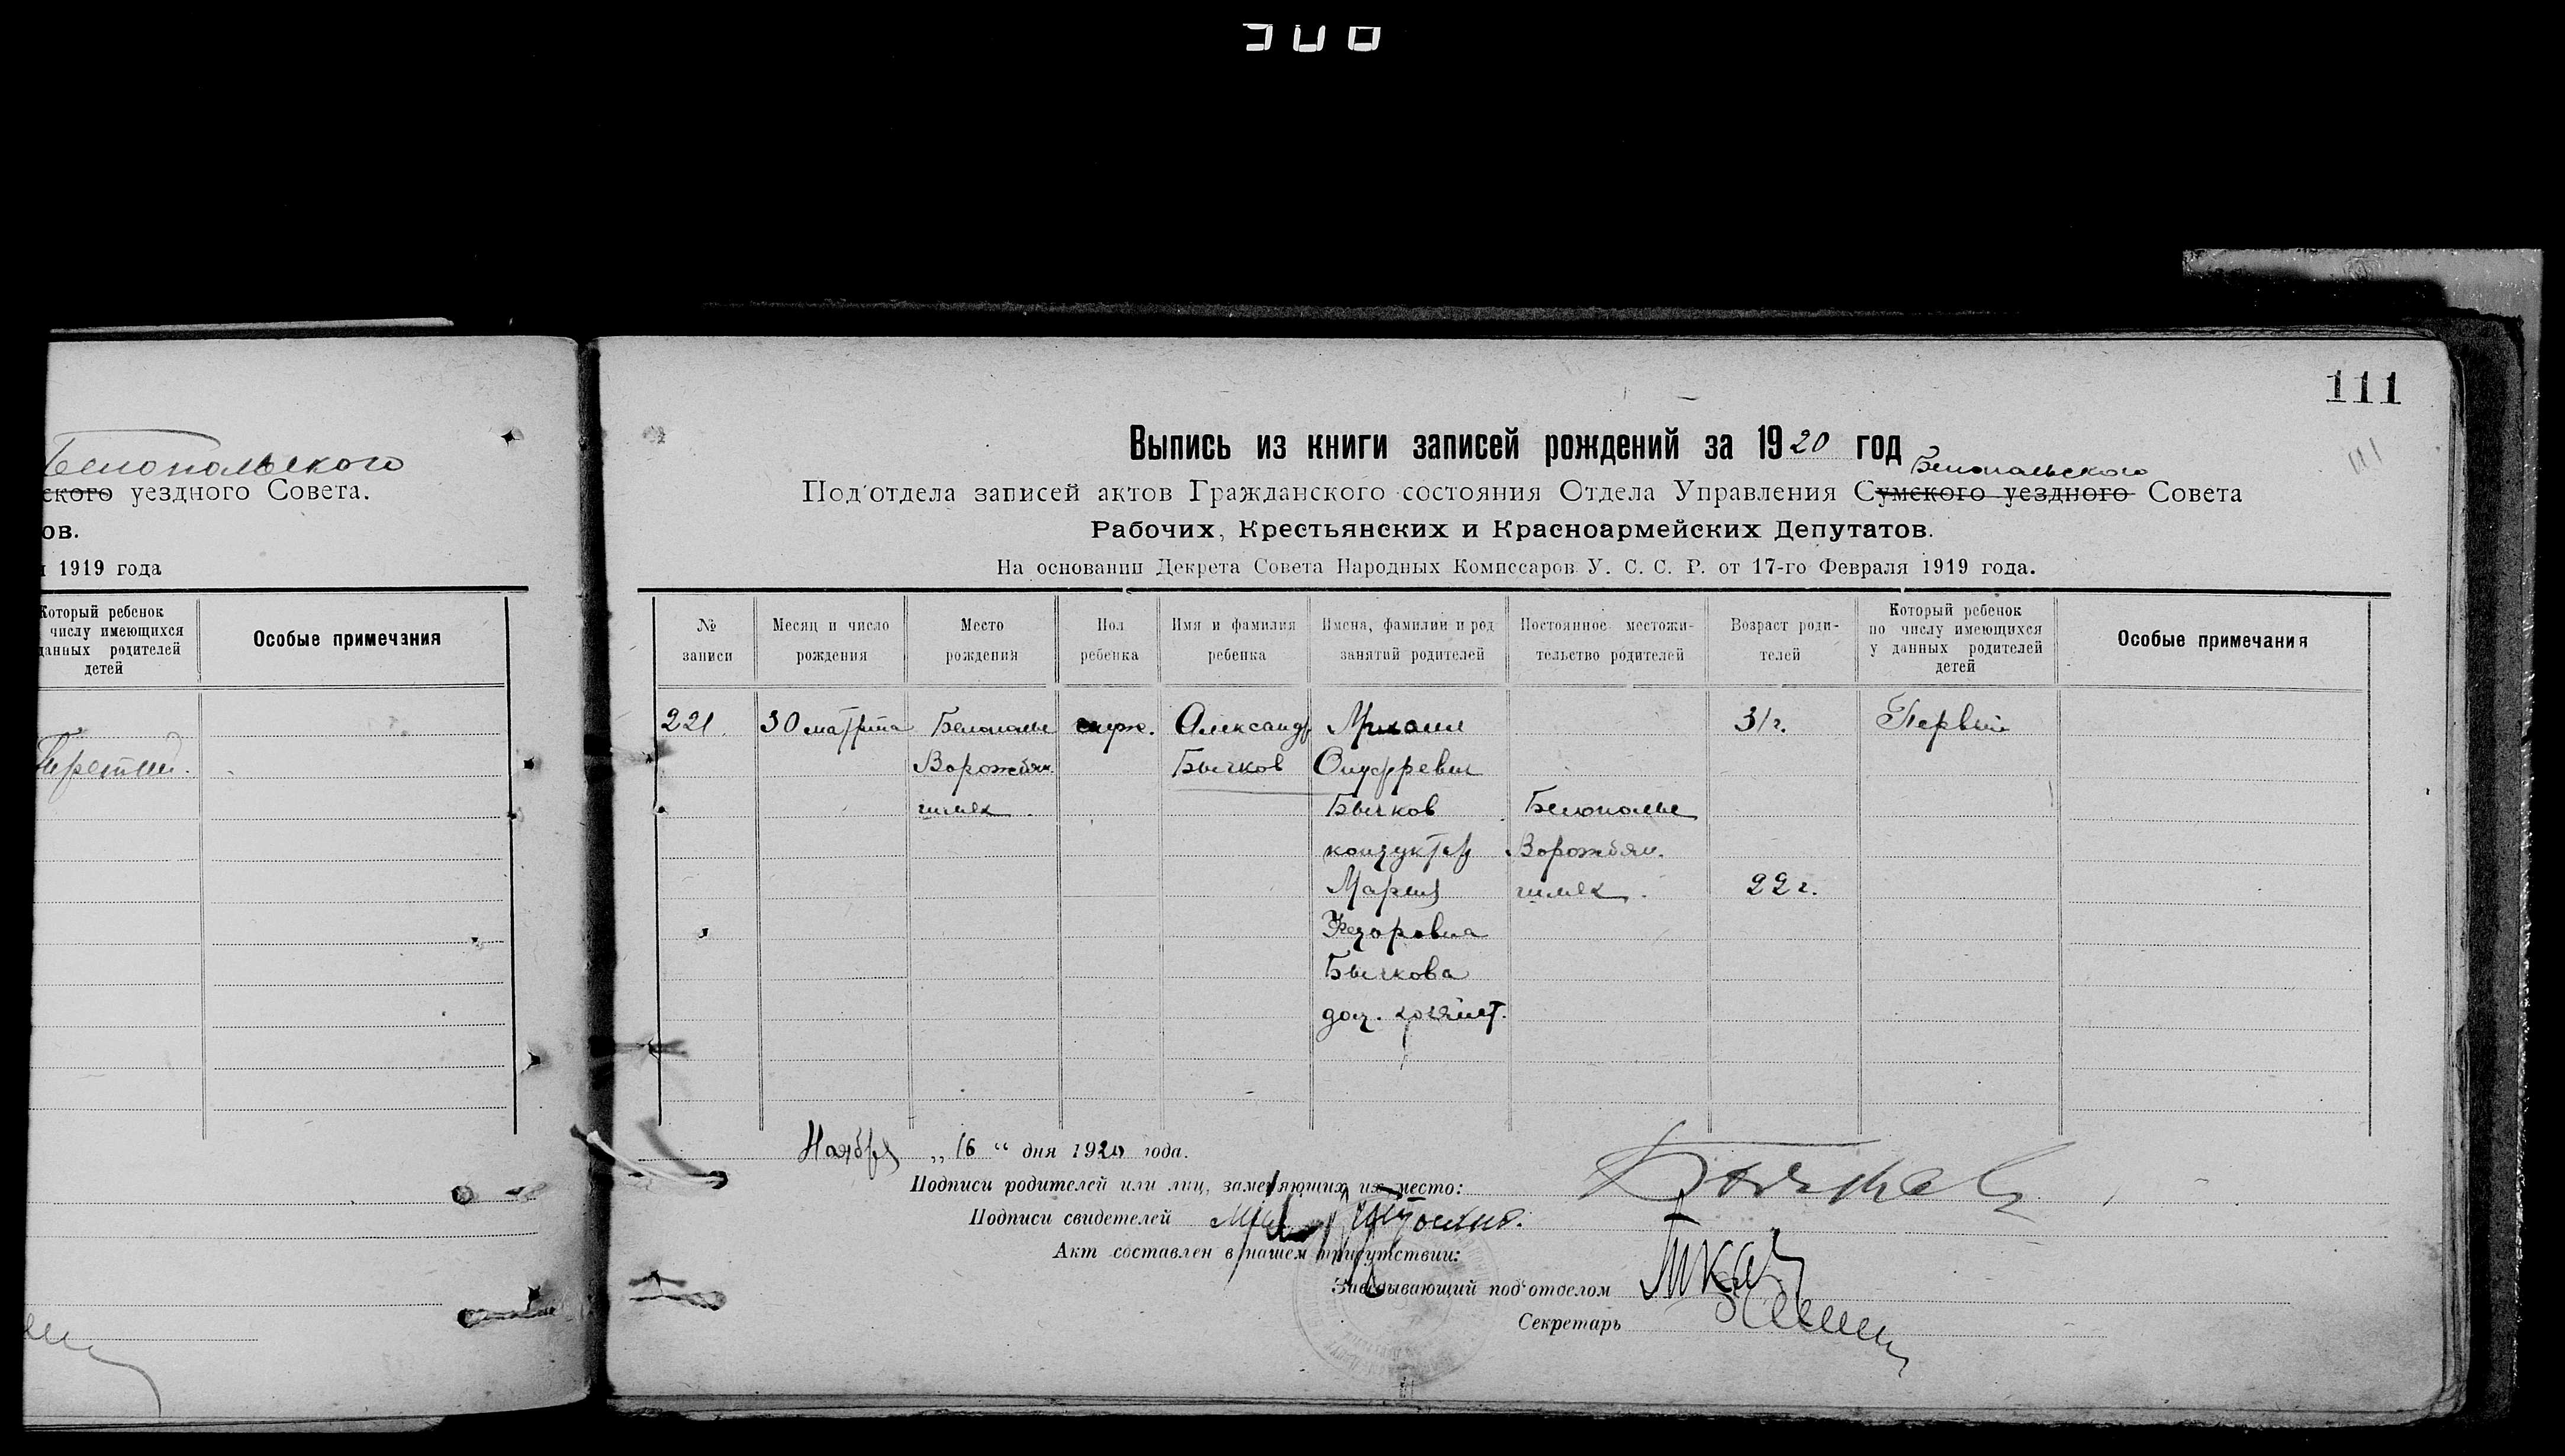 Белопольского
ского уездного Совета.
ов.
1919 года
Который ребенок
числу имеющихся
данных родителей
детей
Особые примечания
111
Выпись из книги записей рождений за 1920 год
Белопольского
Под'отдела записей актов Гражданского состояния Отдела Управления Сумского уездного Совета
Рабочих, Крестьянских и Красноармейских Депутатов.
На основании Декрета Совета Народных Комиссаров У. С. С. Р. от 17-го Февраля 1919 года.
№ записи
Месяц и число рождения
Место рождения
Пол ребенка
Имя и фамилия ребенка
Имена, фамилии и род занятий родителей
Постоянное местожи-тельство родителей
Возраст роди-телей
Который ребенок по числу имеющихся у данных родителей детей
Особые примечания
221. 30 марта Белополье Александр Михаил 31 г. Первый
Ворожбян. Бычков Онуфревич
Бычков Белополье
кондуктор Ворожбян.
Мария 22 г.
Федоровна
Бычкова
дом. хозяйст.
Ноября „ 16 “ дня 1920 года.
Подписи родителей или лиц, заменяющих их место: Бычков
Подписи свидетелей
Акт составлен в нашем присутствии:
Заведывающий под'отделом
Секретарь